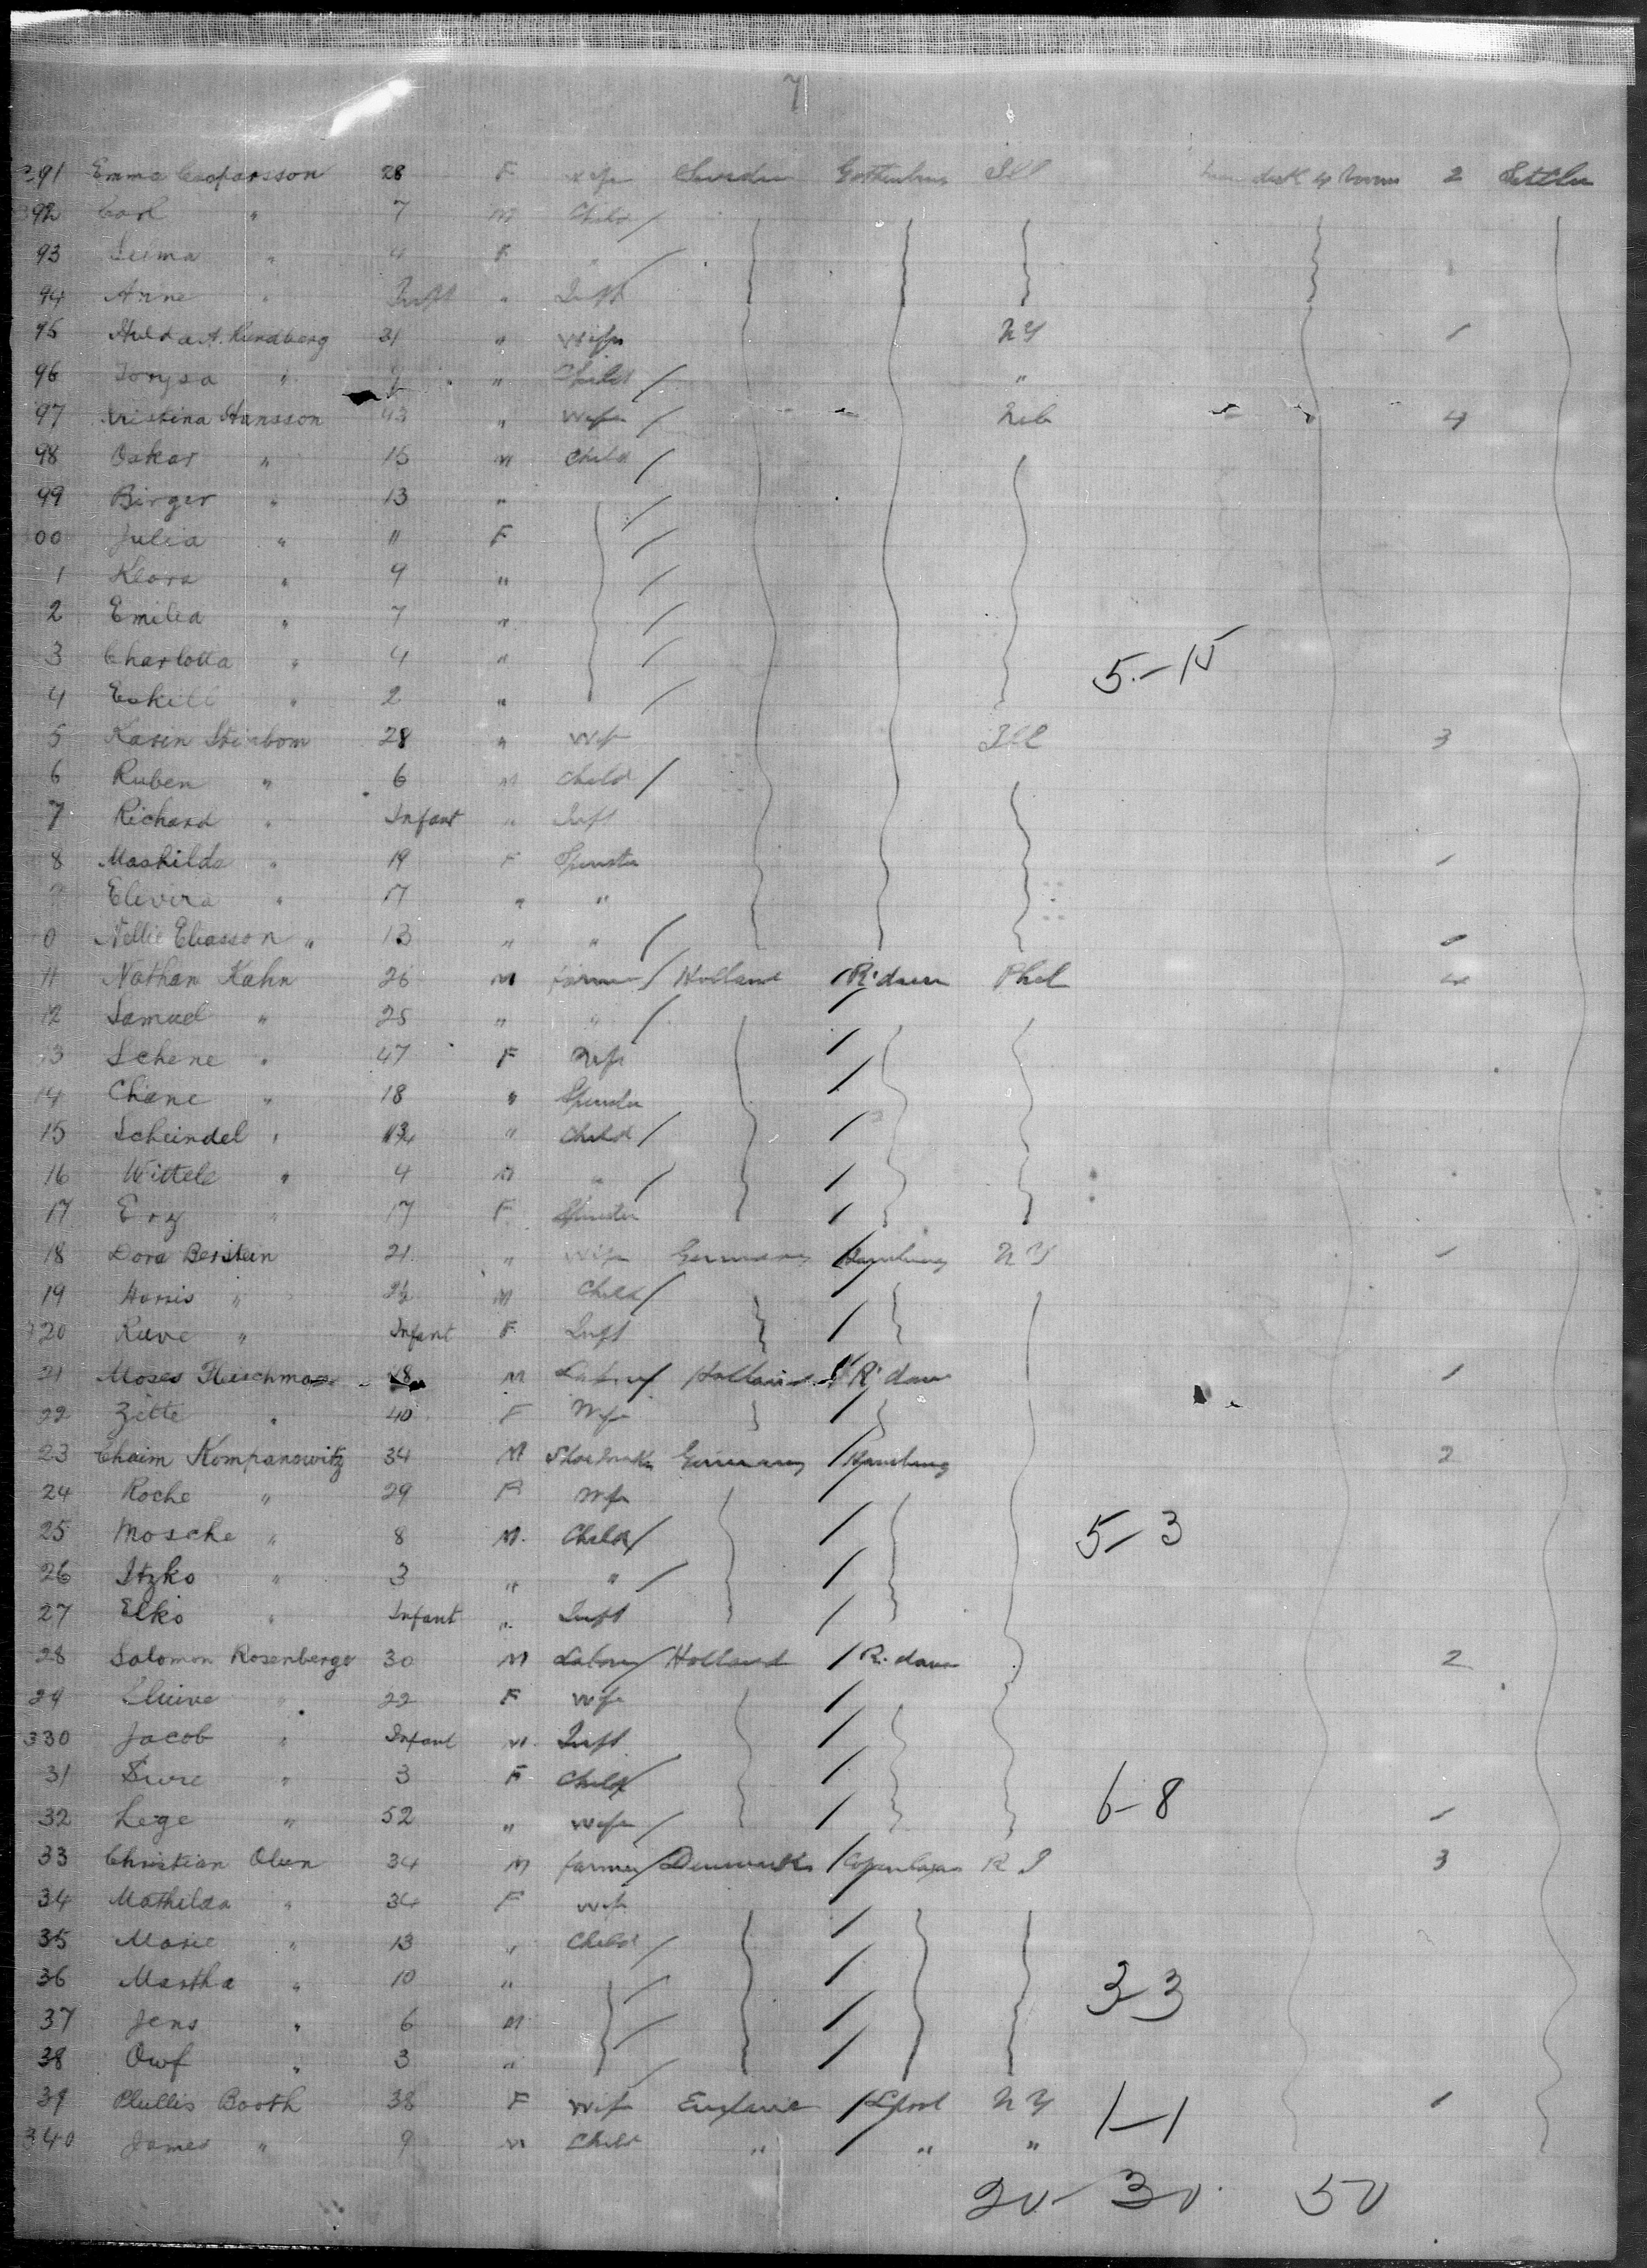 7
291 Emma Casparsson 28 F Wife Sweden Gothenburg Ill 2 Settler
92 Carl " 7 M Child /
93 Selma " 4 F " /
94 Anne " Inft " Inft
95 Hulda A. Rundberg 31 " Wife NY 1
96 " " Child / "
97 Kristina Hansson 43 " Wife / Neb 4
98 Oskar " 15 M Child /
99 Birger " 13 " /
00 Julia " 11 F /
1 Klara " 9 " /
2 Emilia " 7 " /
3 Charlotta " 4 " / 5-15
4 Eskill " 2 " /
5 Karin " 28 " Wife Ill 3
6 Ruben " 6 M Child /
7 Richard " Infant " Inft
8 Mashilda " 19 F Spinster 1
9 Elevira " 17 " "
0 Nellie Eliasson " 13 " " / 1
11 Nathan Kahn 26 M farmer / Holland / R'dam Phil
12 Samuel " 25 " " / /
13 Schene " 47 F Wife /
14 Chane " 18 " Spinster /
15 Scheindel " " Child / /
16 Wittele " 4 M " / /
17 " 17 F Spinster /
18 Dora Berstein 21 " Wife Germany / Hamburg NY 1
19 " M Child / /
320 Ruve " Infant F Inft /
21 Moses 48 M Labour / Holland / R'dam 1
22 Zitte " 40 F Wife /
23 Chaim Kompanowitz 34 M Shoemaker Germany / Hamburg 2
24 Roche " 29 F Wife /
25 Mosche " 8 M. Child / / 5-3
26 Itzko " 3 " " / /
27 Elko " Infant " Inft /
28 Salomon Rosenberge 30 M Labour / Holland / R.dam 2
29 " 22 F Wife /
330 Jacob " Infant M. Inft /
31 Sure " 3 F Child / /
32 Lege " 52 " Wife / / 6-8 1
33 Christian Olsen 34 M farmer / Denmark / Copenhagen R I 3
34 Mathilda " 34 F Wife /
35 Marie " 13 " Child / /
36 Martha " 10 " / / 3-3
37 Jens " 6 M / /
38 Owf " 3 " / /
39 Phillis Booth 38 F Wife England / L'pool NY 1-1 1
340 James " 9 M Child " / " "
20 - 30 50